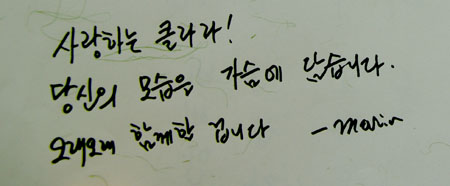 사랑하는 클라라!
당신의 모습을 가슴에 담습니다.
오래오래 함께할 겁니다 - maria